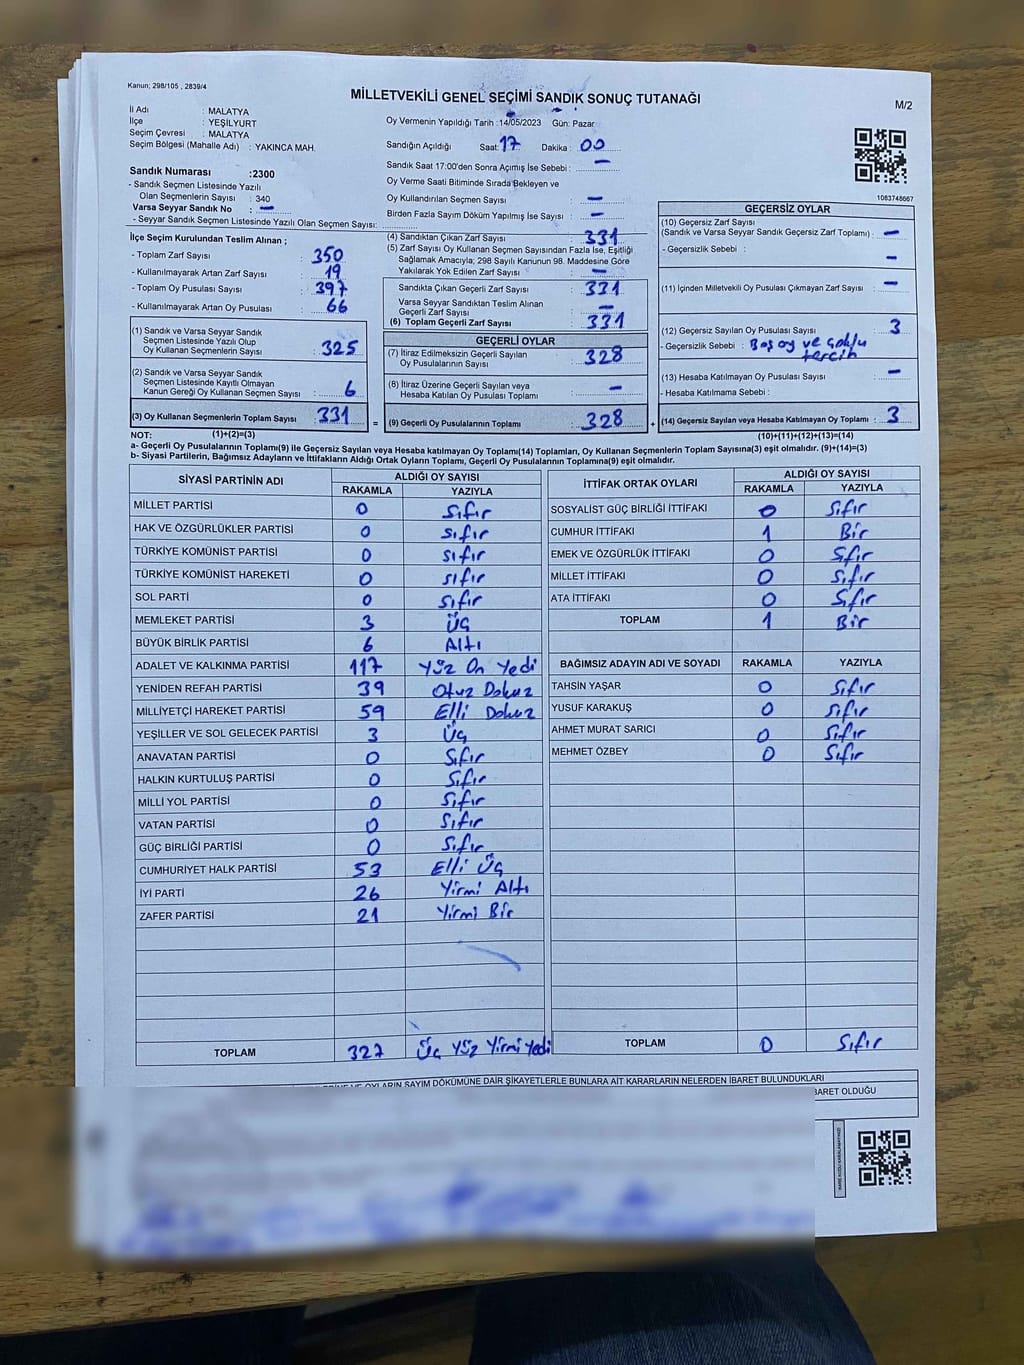 Kanun; 298/105 , 2839/4
MİLLETVEKİLİ GENEL SEÇİMİ SANDIK SONUÇ TUTANAĞI
M/2
İl Adı : MALATYA
İlçe : YEŞİLYURT
Seçim Çevresi : MALATYA
Seçim Bölgesi (Mahalle Adı) : YAKINCA MAH.
Sandık Numarası :2300
- Sandık Seçmen Listesinde Yazılı
Olan Seçmenlerin Sayısı : 340
Varsa Seyyar Sandık No : –
- Seyyar Sandık Seçmen Listesinde Yazılı Olan Seçmen Sayısı:
Oy Vermenin Yapıldığı Tarih :14/05/2023 Gün: Pazar
Sandığın Açıldığı Saat: 17 Dakika : 00
Sandık Saat 17:00'den Sonra Açımış İse Sebebi : –
Oy Verme Saati Bitiminde Sırada Bekleyen ve
Oy Kullandırılan Seçmen Sayısı : –
Birden Fazla Sayım Döküm Yapılmış İse Sayısı : –
1083748667
İlçe Seçim Kurulundan Teslim Alınan ;
- Toplam Zarf Sayısı : 350
- Kullanılmayarak Artan Zarf Sayısı : 19
- Toplam Oy Pusulası Sayısı : 397
- Kullanılmayarak Artan Oy Pusulası : 66
(1) Sandık ve Varsa Seyyar Sandık
Seçmen Listesinde Yazılı Olup
Oy Kullanan Seçmenlerin Sayısı : 325
(2) Sandık ve Varsa Seyyar Sandık
Seçmen Listesinde Kayıtlı Olmayan
Kanun Gereği Oy Kullanan Seçmen Sayısı : 6
(3) Oy Kullanan Seçmenlerin Toplam Sayısı : 331
(4) Sandıktan Çıkan Zarf Sayısı : 331
(5) Zarf Sayısı Oy Kullanan Seçmen Sayısından Fazla İse, Eşitliği
Sağlamak Amacıyla; 298 Sayılı Kanunun 98. Maddesine Göre
Yakılarak Yok Edilen Zarf Sayısı : –
Sandıkta Çıkan Geçerli Zarf Sayısı : 331
Varsa Seyyar Sandıktan Teslim Alınan
Geçerli Zarf Sayısı : –
(6) Toplam Geçerli Zarf Sayısı : 331
GEÇERLİ OYLAR
(7) İtiraz Edilmeksizin Geçerli Sayılan
Oy Pusulalarının Sayısı : 328
(8) İtiraz Üzerine Geçerli Sayılan veya
Hesaba Katılan Oy Pusulaları Toplamı : –
= (9) Geçerli Oy Pusulalarının Toplamı : 328 +
GEÇERSİZ OYLAR
(10) Geçersiz Zarf Sayısı
(Sandık ve Varsa Seyyar Sandık Geçersiz Zarf Toplamı) : –
- Geçersizlik Sebebi : –
(11) İçinden Milletvekili Oy Pusulası Çıkmayan Zarf Sayısı : –
(12) Geçersiz Sayılan Oy Pusulası Sayısı : 3
- Geçersizlik Sebebi : Boş oy ve çoklu
tercih
(13) Hesaba Katılmayan Oy Pusulası Sayısı : –
- Hesaba Katılmama Sebebi :
(14) Geçersiz Sayılan veya Hesaba Katılmayan Oy Toplamı : 3
NOT: (1)+(2)=(3)
(10)+(11)+(12)+(13)=(14)
a- Geçerli Oy Pusulalarının Toplamı(9) ile Geçersiz Sayılan veya Hesaba katılmayan Oy Toplamı(14) Toplamları, Oy Kullanan Seçmenlerin Toplam Sayısına(3) eşit olmalıdır. (9)+(14)=(3)
b- Siyasi Partilerin, Bağımsız Adayların ve İttifakların Aldığı Ortak Oyların Toplamı, Geçerli Oy Pusulalarının Toplamına(9) eşit olmalıdır.
SİYASİ PARTİNİN ADI ALDIĞI OY SAYISI
RAKAMLA YAZIYLA
MİLLET PARTİSİ 0 Sıfır
HAK VE ÖZGÜRLÜKLER PARTİSİ 0 Sıfır
TÜRKİYE KOMÜNİST PARTİSİ 0 sıfır
TÜRKİYE KOMÜNİST HAREKETİ 0 sıfır
SOL PARTİ 0 Sıfır
MEMLEKET PARTİSİ 3 Üç
BÜYÜK BİRLİK PARTİSİ 6 Altı
ADALET VE KALKINMA PARTİSİ 117 Yüz On Yedi
YENİDEN REFAH PARTİSİ 39 Otuz Dokuz
MİLLİYETÇİ HAREKET PARTİSİ 59 Elli Dokuz
YEŞİLLER VE SOL GELECEK PARTİSİ 3 Üç
ANAVATAN PARTİSİ 0 Sıfır
HALKIN KURTULUŞ PARTİSİ 0 Sıfır
MİLLİ YOL PARTİSİ 0 Sıfır
VATAN PARTİSİ 0 Sıfır
GÜÇ BİRLİĞİ PARTİSİ 0 Sıfır
CUMHURİYET HALK PARTİSİ 53 Elli Üç
İYİ PARTİ 26 Yirmi Altı
ZAFER PARTİSİ 21 Yirmi Bir
TOPLAM 327 Üç Yüz Yirmi Yedi
İTTİFAK ORTAK OYLARI ALDIĞI OY SAYISI
RAKAMLA YAZIYLA
SOSYALİST GÜÇ BİRLİĞİ İTTİFAKI 0 Sıfır
CUMHUR İTTİFAKI 1 Bir
EMEK VE ÖZGÜRLÜK İTTİFAKI 0 Sıfır
MİLLET İTTİFAKI 0 Sıfır
ATA İTTİFAKI 0 Sıfır
TOPLAM 1 Bir
BAĞIMSIZ ADAYIN ADI VE SOYADI RAKAMLA YAZIYLA
TAHSİN YAŞAR 0 Sıfır
YUSUF KARAKUŞ 0 Sıfır
AHMET MURAT SARICI 0 Sıfır
MEHMET ÖZBEY 0 Sıfır
TOPLAM 0 Sıfır
OYLARIN SAYIM DÖKÜMÜNE DAİR ŞİKAYETLERLE BUNLARA AİT KARARLARIN NELERDEN İBARET BULUNDUKLARI
BARET OLDUĞU